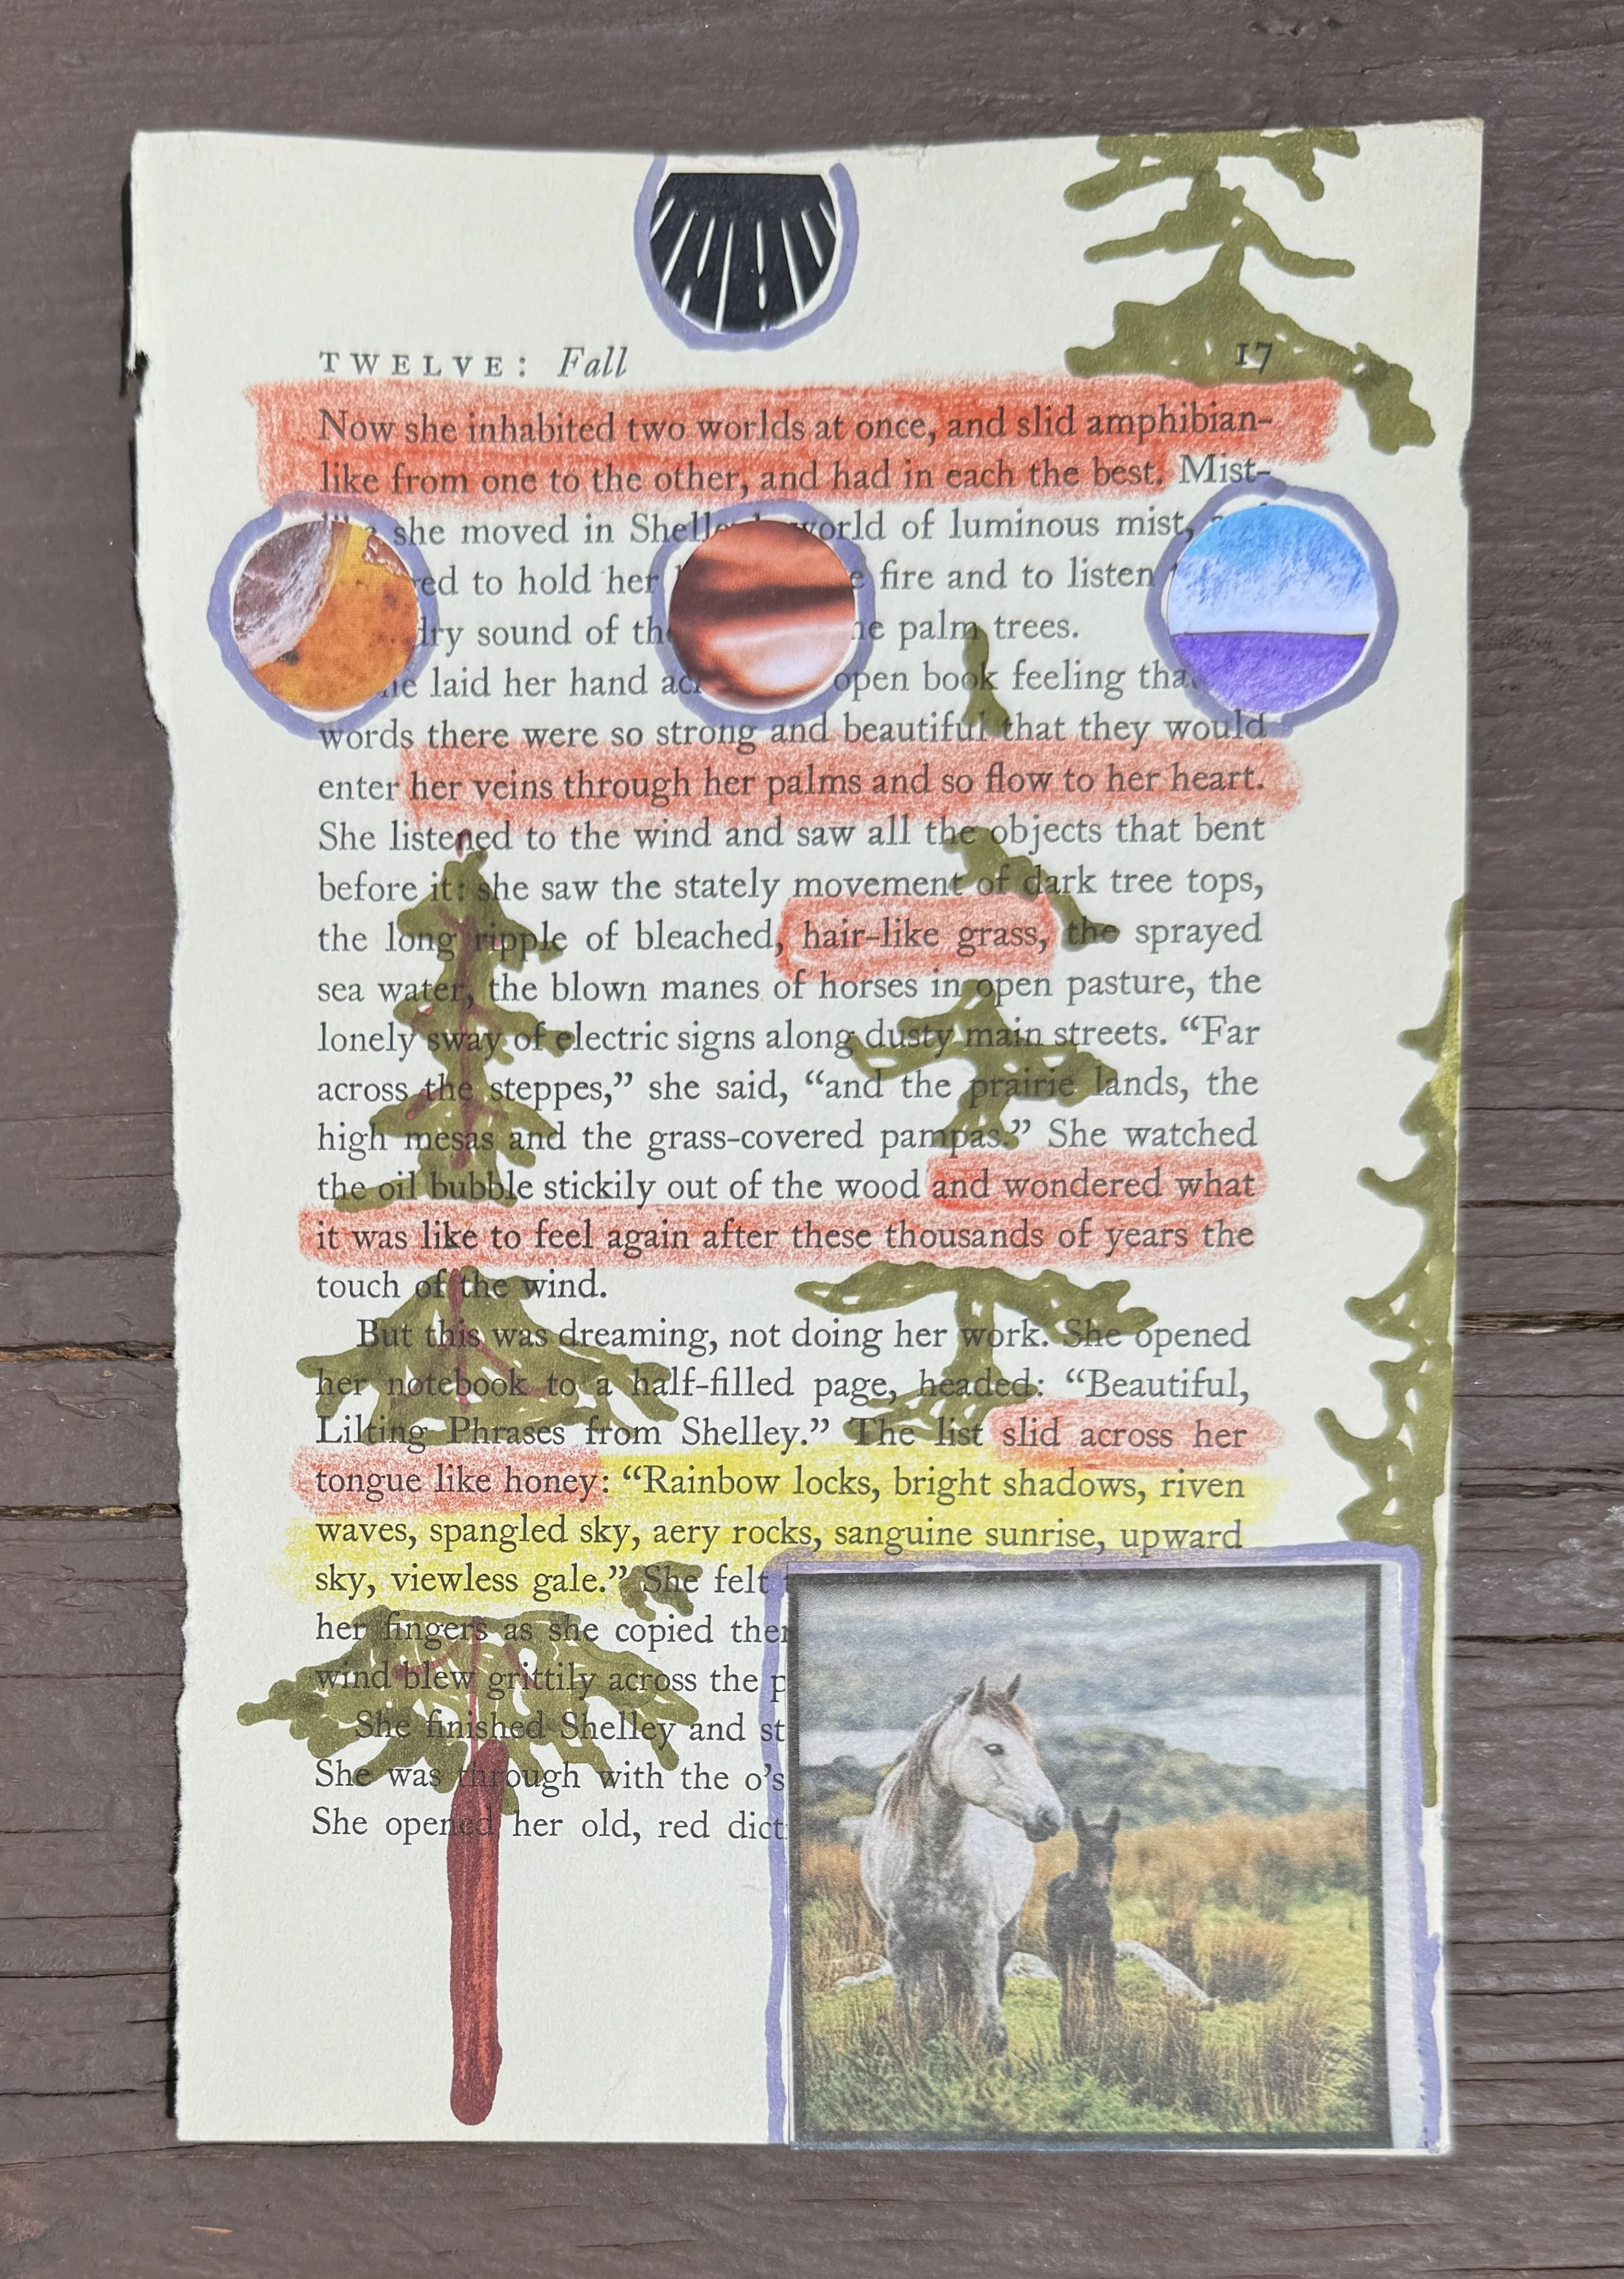 TWELVE: Fall 17
Now she inhabited two worlds at once, and slid amphibian-
like from one to the other, and had in each the best. Mist-
she moved in world of luminous mist,
to hold her fire and to listen
dry sound of palm trees.
laid her hand open book feeling
words there were so strong and beautiful that they would
enter her veins through her palms and so flow to her heart.
She listened to the wind and saw all the objects that bent
before it: she saw the stately movement of dark tree tops,
the long ripple of bleached, hair-like grass, the sprayed
sea water, the blown manes of horses in open pasture, the
lonely sway of electric signs along dusty main streets. “Far
across the steppes,” she said, “and the prairie lands, the
high mesas and the grass-covered pampas.” She watched
the oil bubble stickily out of the wood and wondered what
it was like to feel again after these thousands of years the
touch of the wind.
But this was dreaming, not doing her work. She opened
her notebook to a half-filled page, headed: “Beautiful,
Lilting Phrases from Shelley.” The list slid across her
tongue like honey: “Rainbow locks, bright shadows, riven
waves, spangled sky, aery rocks, sanguine sunrise, upward
sky, viewless gale.” She felt
her fingers as she copied
wind blew grittily across the
She finished Shelley and
She was through with the o’s
She opened her old, red